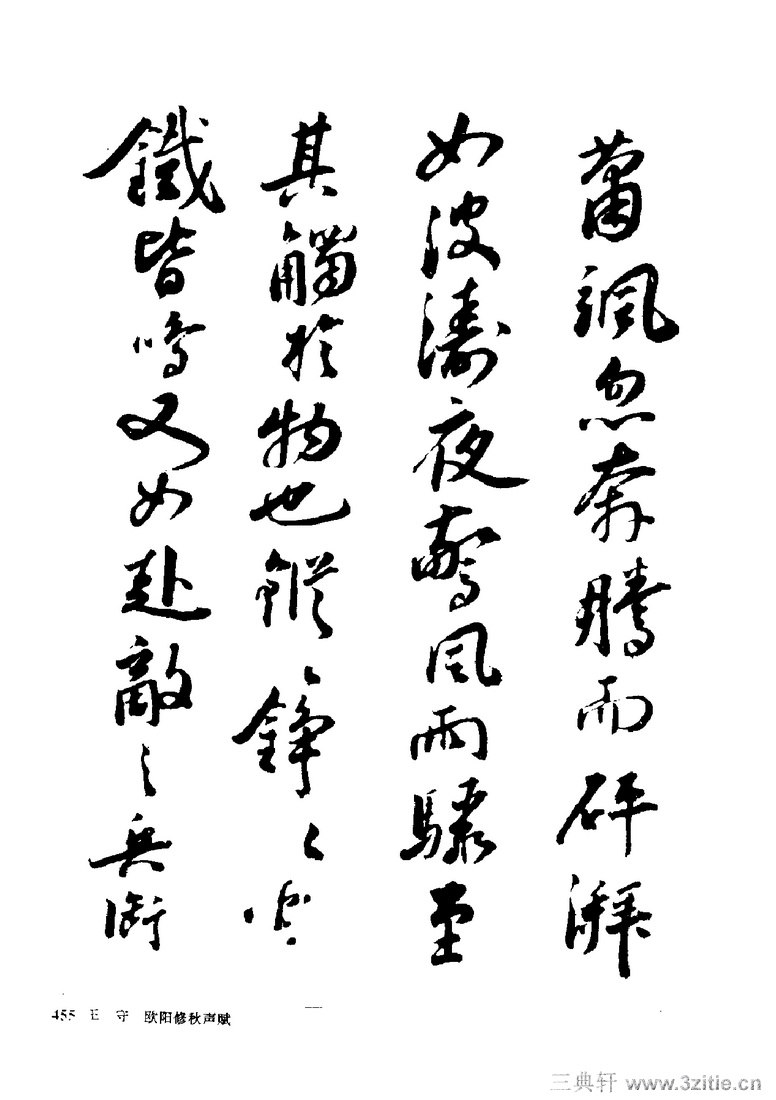 蕭颯忽奔騰而砰湃
如波濤夜驚風雨驟至
其觸於物也鏦〻錚〻金
鐵皆鳴又如赴敵之兵銜
455 王 守 欧阳修秋声赋
三典轩 www.3zitie.cn